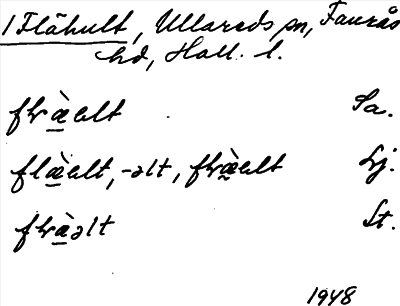 1 Flähult, Ullareds sn, Faurås
hd, Hall. l.
flræ̀elt Sa.
flæ̀elt, -əlt, flræ̀elt Lj.
flræ̀əlt St.
1948